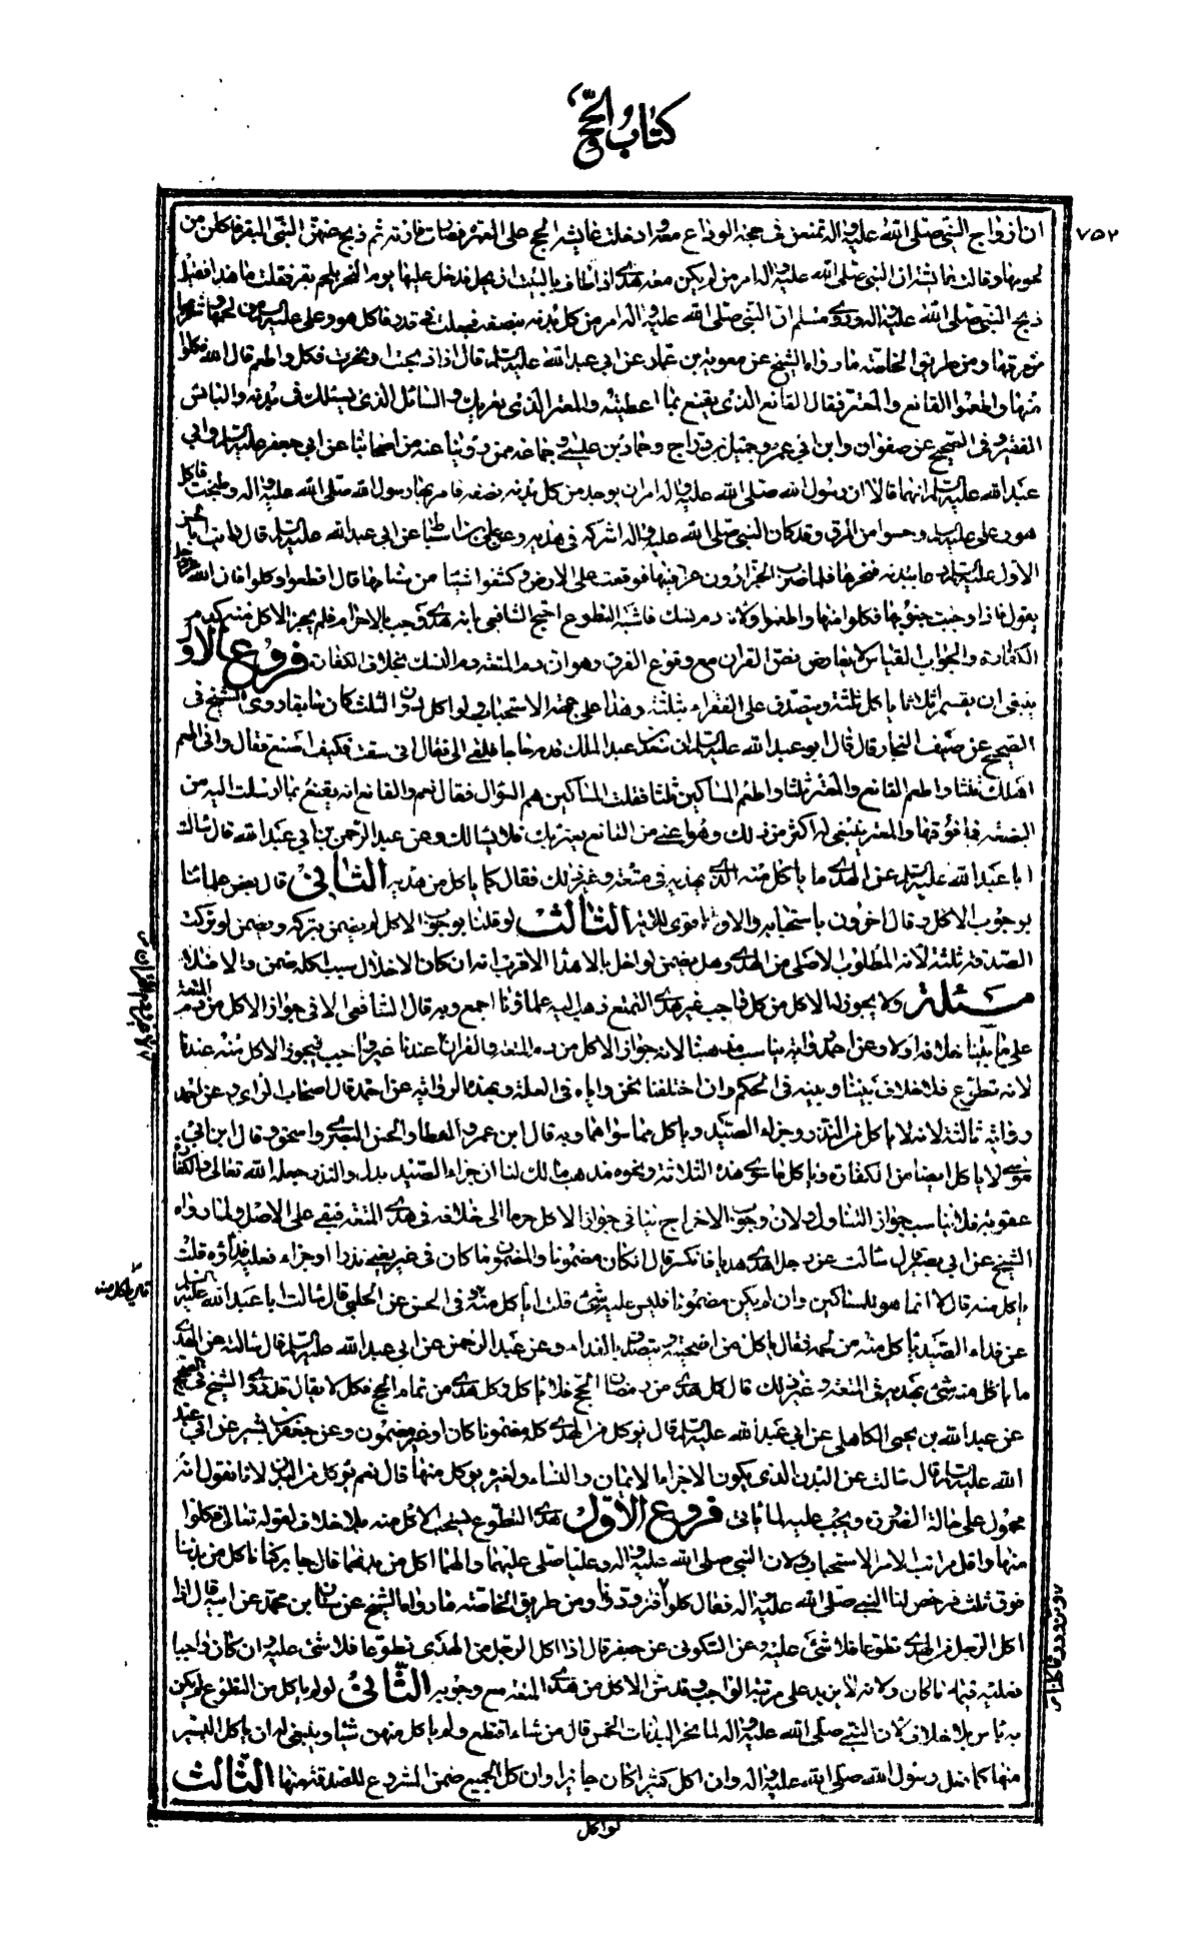 كتاب الحج
٧٥٢
ان ازواج النبي صلى الله عليه واله تمتعن في حجة الوداع معه وادخلت عايشة الحج على العمرة فصارت قارنة ثم ذبح عنهن النبي البقر فاكلن من
لحومها وقالت عايشة ان النبي صلى الله عليه واله امر من لم يكن معه هدى اذا طاف بالبيت ان يحل فدخل علينا يوم النحر بلحم بقر فقلت ما هذا فقيل
ذبح النبي صلى الله عليه واله وروى مسلم ان النبي صلى الله عليه واله امر من كل بدنة ببضعة فجعلت في قدر فاكل هو وعلى عليه السلم من لحمها وشربا
من مرقها ومن طريق الخاصة ما رواه الشيخ عن معوية بن عمار عن ابي عبد الله عليه السلم قال اذا ذبحت او نحرت فكل واطعم كما قال الله فكلوا
منها واطعموا القانع والمعتر فقال القانع الذي يقنع بما اعطيته والمعتر الذي يعتريك والسائل الذي يسئلك في يديه والبائس
الفقير وفي الصحيح عن صفوان وابن ابي عمير وجميل بن دراج وحماد بن عيسى وجماعة ممن روينا عنه من اصحابنا عن ابي جعفر عليه السلم وابي
عبد الله عليه السلم انهما قالا ان رسول الله صلى الله عليه واله امر ان يوخذ من كل بدنة بضعة فامر بها رسول الله صلى الله عليه واله وطبخت فاكل
هو وعلى عليه السلم وحسوا من المرق وقد كان النبي صلى الله عليه واله اشركه في هديه وعن علي بن اسباط عن ابي عبد الله عليه السلم قال رايت ابا الحسن
الاول عليه السلم دعا ببدنة فنحرها فلما ضرب الجزارون عراقيبها فوقعت على الارض وكشفوا شيئا من سنامها قال اقطعوا وكلوا فان الله عز وجل
يقول فاذا وجبت جنوبها فكلوا منها واطعموا ولانه دم نسك فاشبه التطوع احتج الشافعي بانه هدى وجب بالاحرام فلم يجز الاكل منه كدم
الكفارة والجواب القياس لا يعارض نص القران مع وقوع الفرق وهو ان دم المتعة دم النسك بخلاف الكفارة فروع الاول
ينبغي ان يقسم اثلاثا ياكل ثلثه ويتصدق على الفقراء بثلثه وهذا على جهة الاستحباب ولو اكل دون الثلث كان جايزا وروى الشيخ في
الصحيح عن سيف التمار قال قال ابو عبد الله عليه السلم ان سعيد بن عبد الملك قدم حاجا فلقي ابي فقال اني سقت هديا فكيف اصنع فقال له ابي اطعم
اهلك ثلثا واطعم القانع والمعتر ثلثا واطعم المساكين ثلثا فقلت المساكين هم السؤال فقال نعم والقانع الذي يقنع بما ارسلت اليه من
البضعة فما فوقها والمعتر ينبغي له اكثر من ذلك وهو اغنى من القانع يعتريك فلا يسالك وعن عبد الرحمن بن ابي عبد الله قال سالت
ابا عبد الله عليه السلم عن الهدى ما ياكل منه الذي يهديه في متعة وغير ذلك فقال كما ياكل من هديه الثاني قال بعض علمائنا
بوجوب الاكل وقال اخرون باستحبابه والاول اقوى للاية الثالث لو قلنا بوجوب الاكل لم يضمن بتركه ويضمن لو ترك
الصدقة ثلثه لانه المطلوب الاصلي من الهدى وهل يضمن لو اخل بالاهداء الاقرب انه ان كان الاخلال بسبب اكله ضمن والا فلا
مسئلة ولا يجوز له الاكل من كل واجب غير هدى التمتع ذهب اليه علماؤنا اجمع وبه قال الشافعي الا في جواز الاكل من دم المتعة
على ما بينا خلافه اولا وعن احمد رواية يناسب مذهبنا لانه جواز الاكل من دم المتعة والقران عندنا غير واجب فيجوز الاكل منه عندنا
لانه تطوع فلا خلاف بيننا وبينه في الحكم وان اختلفنا نحن واياه في العلة وبهذه الرواية عن احمد قال اصحاب الراى وعن احمد
رواية ثالثة لانه لا ياكل من النذر وجزاء الصيد وياكل مما سواهما وبه قال ابن عمر والعطا والحسن البصري واسحق وقال ابن ابي
موسى لا ياكل ايضا من الكفارة وياكل ما سوى هذه الثلاثة ونحوه مذهب مالك لنا ان جزاء الصيد بدل والنذر جعله الله تعالى والكفارة
عقوبة فلا يناسب جواز التناول ولان وجوب الاخراج ينافي جواز الاكل خرجنا الى خلافه في هدى المتعة فيبقى على الاصل ولما رواه
الشيخ عن ابي بصير قال سالت عن رجل اهدى هديا فانكسر قال ان كان مضمونا والمضمون ما كان في غير يعني نذرا او جزاء فعليه فداؤه قلت
اياكل منه قال لا انما هو للمساكين وان لم يكن مضمونا فليس عليه شيء قلت اياكل منه قال ياكل منه وفي الحسن عن الحلبي قال سالت ابا عبد الله عليه السلم
عن فداء الصيد ياكل منه من لحمه فقال ياكل من اضحيته ويتصدق بالفداء وعن عبد الرحمن عن ابي عبد الله عليه السلم قال سالته عن الهدى
ما ياكل منه شئ يهديه في المتعة وغير ذلك قال كل هدى من نقصان الحج فلا تاكل وكل هدى من تمام الحج فكل لا يقال قد روى الشيخ في الصحيح
عن عبد الله بن يحيى الكاهلي عن ابي عبد الله عليه السلم قال يوكل من الهدى كله مضمونا كان او غير مضمون وعن جعفر بن بشير عن ابي عبد
الله عليه السلم قال سالت عن البدن الذي يكون لاجزاء الايمان والنساء ولغيره يوكل منها قال نعم يوكل من كل البدن لانا نقول انه
محمول على حالة الضرورة ويجب عليه لما ياتي فروع الاول هدى التطوع يستحب الاكل منه بلا خلاف لقوله تعالى فكلوا
منها واقل مراتب الامر الاستحباب ولان النبي صلى الله عليه واله وعليا صلى عليهما والهما اكلا من بدنهما قال جابر كنا لا ناكل من بدننا
فوق ثلث فرخص لنا النبي صلى الله عليه واله فقال كلوا وتزودوا ومن طريق الخاصة ما رواه الشيخ عن بن محمد عن ابيه قال اذا
اكل الرجل من الهدى تطوعا فلا شئ عليه وعن السكوني عن جعفر قال اذا اكل الرجل من الهدى تطوعا فلا شئ عليه وان كان واجبا
فعليه قيمة ما اكل ولانه لا يزيد على مرتبة الواجب وقد مر الاكل من هدى المتعة مع وجوبه الثاني لو لم ياكل من التطوع لم يكن
به باس بلا خلاف لان النبي صلى الله عليه واله لما نحر البدنات الخمس قال من شاء اقتطع ولم ياكل منهن شيئا وينبغي له ان ياكل اليسير
منها كما فعل رسول الله صلى الله عليه واله وان اكل كثيرا كان جايزا وان اكل الجميع ضمن المشروع للصدقة منها الثالث
قال ياكل منه
لو اكل